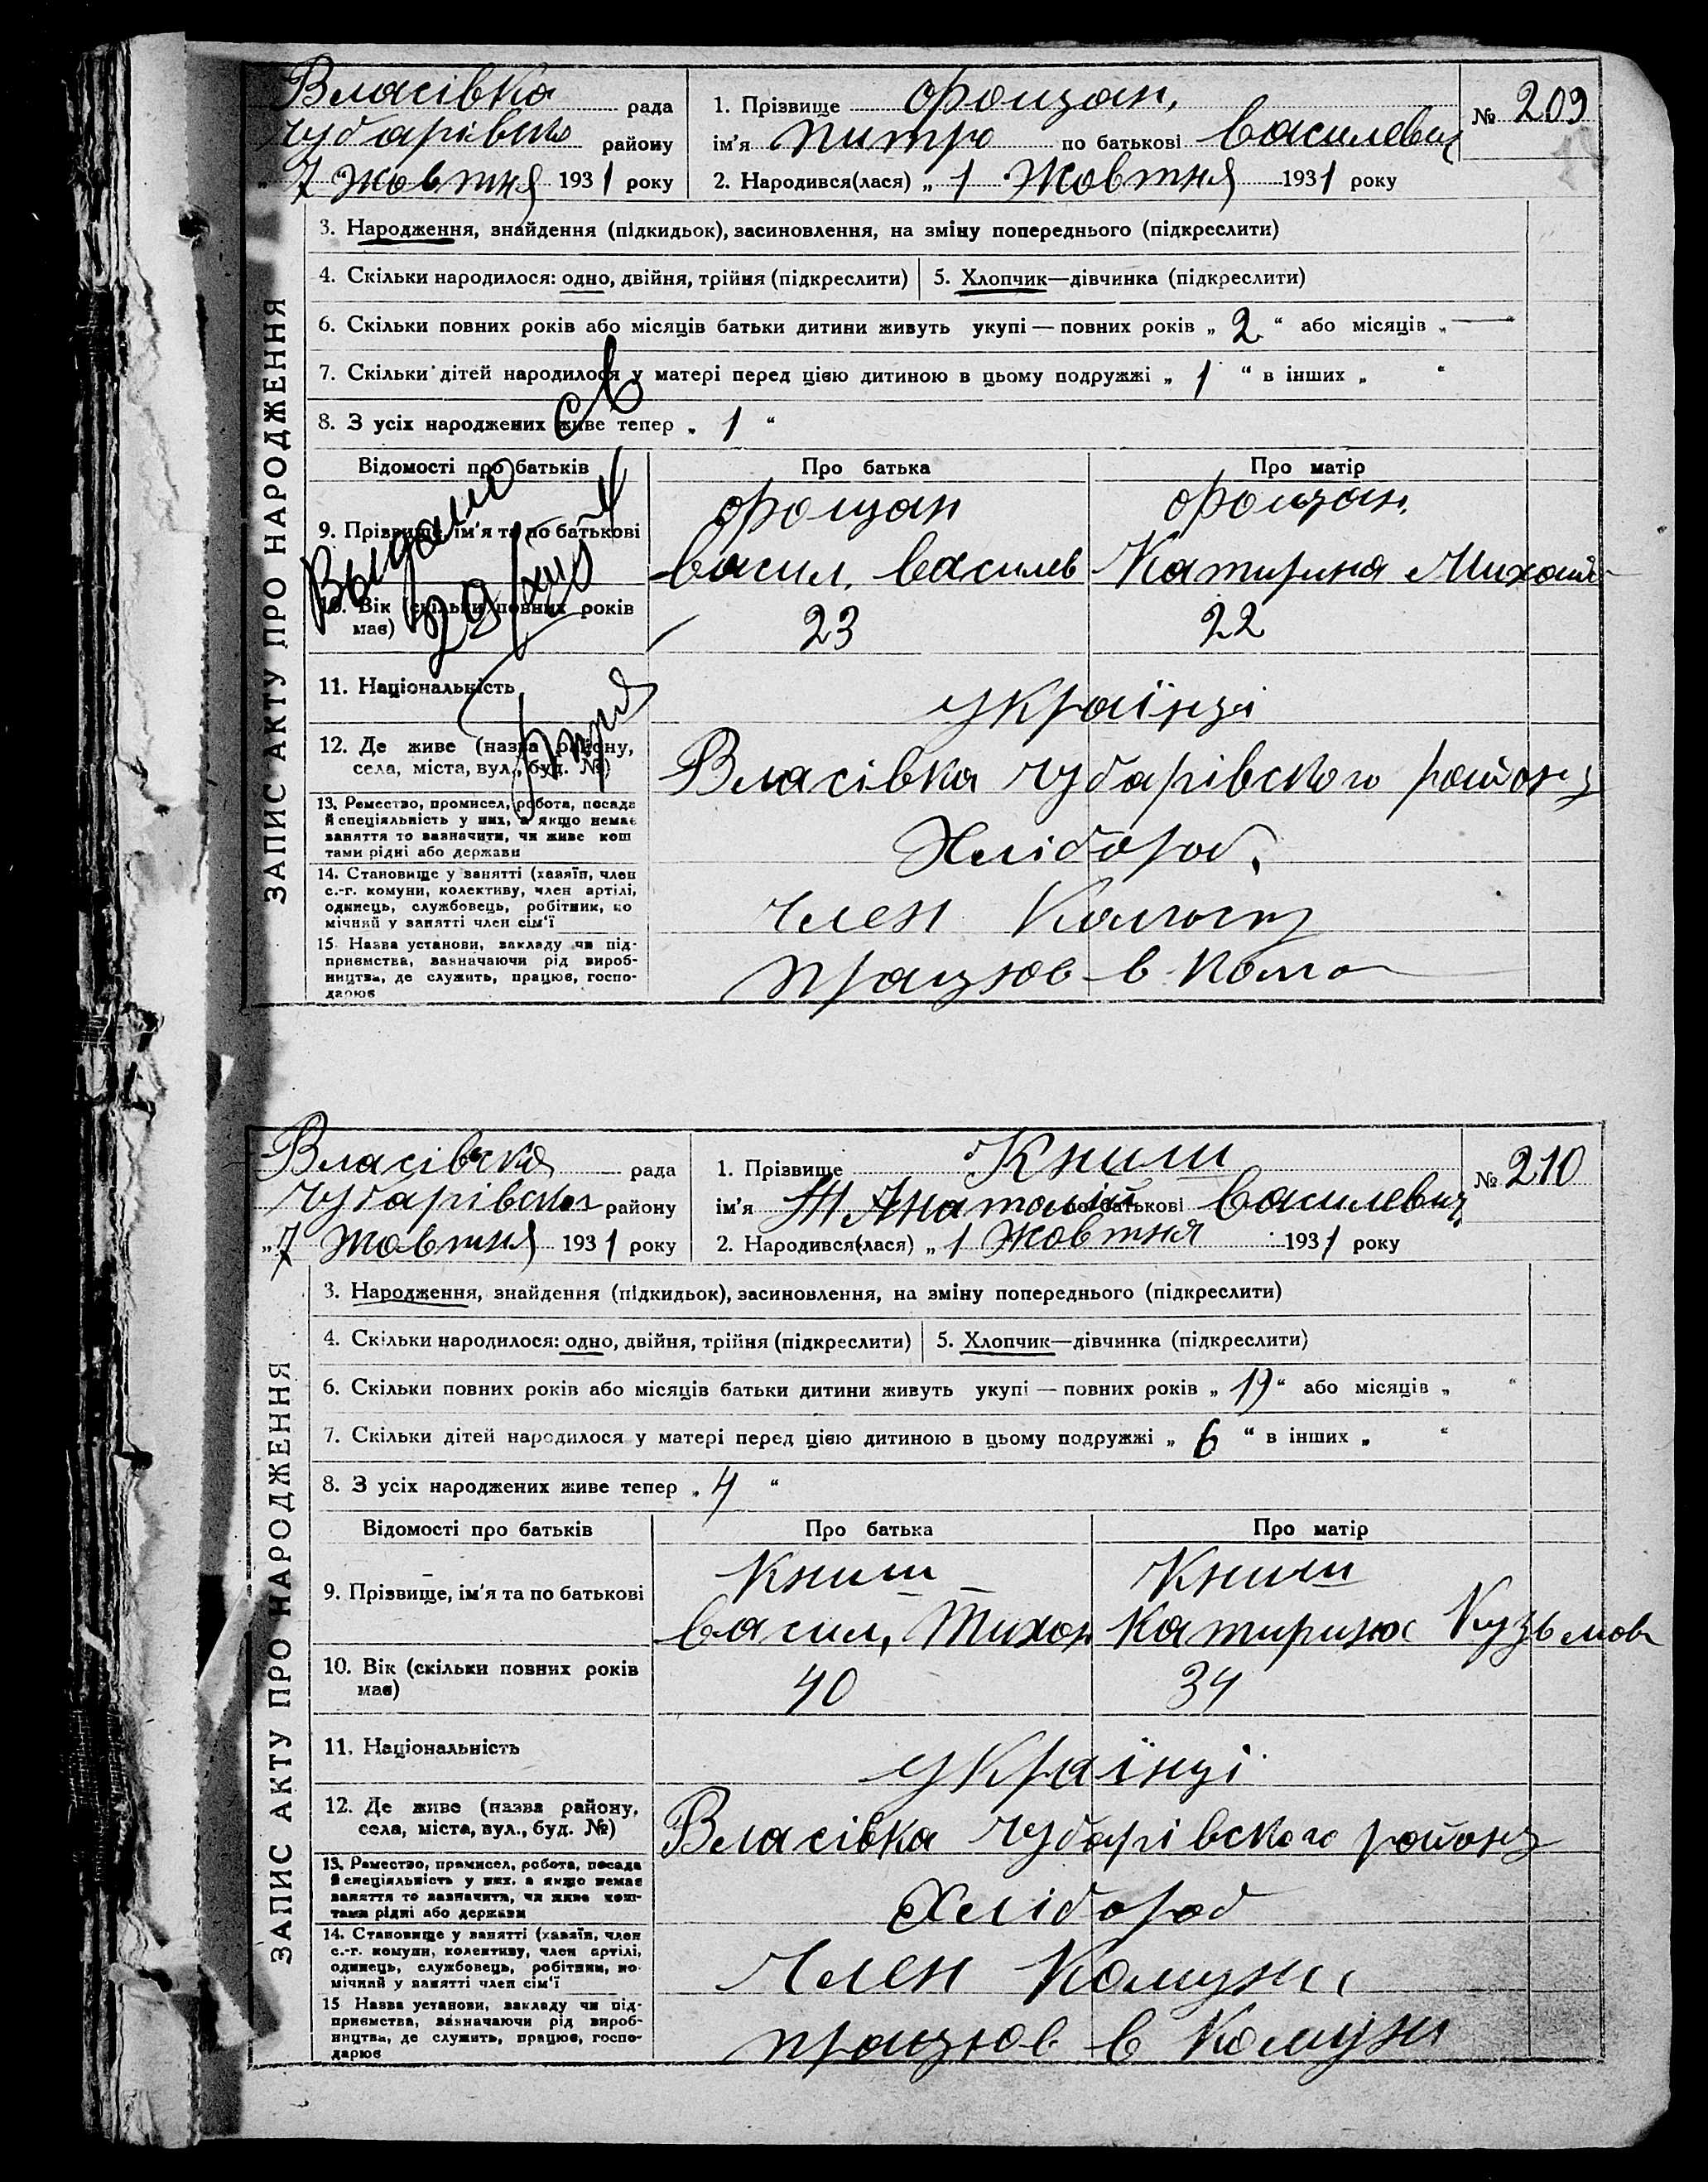 Власівка рада 1. Прізвище Фоицан. № 209
Чубарівсько району ім'я Питро по батькові Василевич
„ 7 Жовтня 1931 року 2. Народився(лася) „ 1 Жовтня 1931 року
ЗАПИС АКТУ ПРО НАРОДЖЕННЯ
3. Народження, знайдення (підкидьок), засиновлення, на зміну попереднього (підкреслити)
4. Скільки народилося: одно, двійня, трійня (підкреслити) 5. Хлопчик—дівчинка (підкреслити)
6. Скільки повних років або місяців батьки дитини живуть укупі — повних років „ 2 “ або місяців „ — “
7. Скільки дітей народилося у матері перед цією дитиною в цьому подружжі „ 1 “ в інших „ “
8. З усіх народжених живе тепер „ 1 “
Відомості про батьків Про батька Про матір
9. Прізвище, ім'я та по батькові
Фоицан Фоицан.
Васил. Василев Катирина Михайл
10. Вік (скільки повних років має) 23 22
11. Національність українці
12. Де живе (назва району, села, міста, вул., буд. №) Власівка Чубарівского району
13. Ремество, промисел, робота, посада
й спеціяльність у них, а якщо немає
заняття то зазначити, чи живе кош
тами рідні або держави
Хлібороб.
14. Становище у занятті (хазяїн, член
с.-г. комуни, колективу, член артілі,
одинець, службовець, робітник, по
мічний у занятті член сім'ї
Член Колгосп
15. Назва установи, закладу чи під-
приємства, зазначаючи рід вироб-
ництва, де служить, працює, госпо-
дарює
працюв в колго
Выдано
св
Власівска рада 1. Прізвище Книш № 210
Чубарівског району ім'я Анатолій по батькові Василевич
„ 7 Жовтня 1931 року 2. Народився(лася) „ 1 Жовтня 1931 року
ЗАПИС АКТУ ПРО НАРОДЖЕННЯ
3. Народження, знайдення (підкидьок), засиновлення, на зміну попереднього (підкреслити)
4. Скільки народилося: одно, двійня, трійня (підкреслити) 5. Хлопчик—дівчинка (підкреслити)
6. Скільки повних років або місяців батьки дитини живуть укупі — повних років „ 19 “ або місяців „ “
7. Скільки дітей народилося у матері перед цією дитиною в цьому подружжі „ 6 “ в інших „ “
8. З усіх народжених живе тепер „ 4 “
Відомості про батьків Про батька Про матір
9. Прізвище, ім'я та по батькові
Книш Книш
Васил, Тихон Катирина Кузьмов
10. Вік (скільки повних років має) 40 34
11. Національність українці
12. Де живе (назва району, села, міста, вул., буд. №) Власівка Чубарівского району
13. Ремество, промисел, робота, посада
й спеціяльність у них, а якщо немає
заняття то зазначити, чи живе кош-
тами рідні або держави
Хлібороб
14. Становище у занятті (хазяїн, член
с.-г. комуни, колективу, член артілі,
одинець, службовець, робітник, по-
мічний у занятті член сім'ї
Член Комуни
15 Назва установи, закладу чи під-
приємства, зазначаючи рід вироб-
ництва, де служить, працює, госпо-
дарює
працюв в Комуни